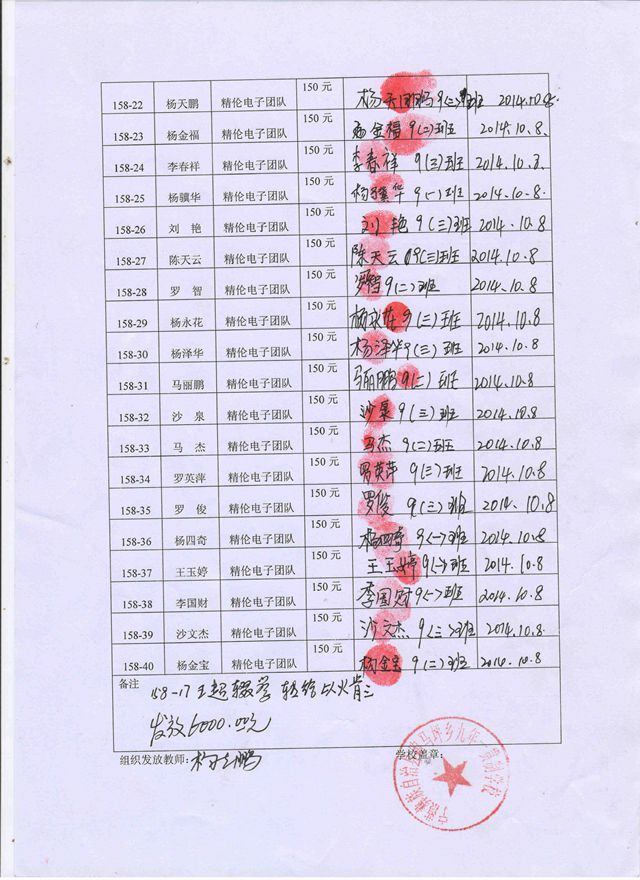 158-22 杨天鹏 精伦电子团队 150 元 杨天鹏 9(二)班 2014.10.8.
158-23 杨金福 精伦电子团队 150 元 杨金福 9(二)班 2014.10.8.
158-24 李春祥 精伦电子团队 150 元 李春祥 9(三)班 2014.10.8.
158-25 杨骥华 精伦电子团队 150 元 杨骥华 9(一)班 2014.10.8.
158-26 刘 艳 精伦电子团队 150 元 刘艳 9(三)班 2014.10.8
158-27 陈天云 精伦电子团队 150 元 陈天云 9(三)班 2014.10.8
158-28 罗 智 精伦电子团队 150 元 罗智 9(二)班 2014.10.8
158-29 杨永花 精伦电子团队 150 元 杨永花 9(三)班 2014.10.8
158-30 杨泽华 精伦电子团队 150 元 杨泽华 9(三)班 2014.10.8
158-31 马丽鹏 精伦电子团队 150 元 马丽鹏 9(二)班 2014.10.8
158-32 沙 泉 精伦电子团队 150 元 沙泉 9(三)班 2014.10.8
158-33 马 杰 精伦电子团队 150 元 马杰 9(二)班 2014.10.8
158-34 罗英萍 精伦电子团队 150 元 罗英萍 9(三)班 2014.10.8
158-35 罗 俊 精伦电子团队 150 元 罗俊 9(三)班 2014.10.8
158-36 杨四奇 精伦电子团队 150 元 杨四奇 9(一)班 2014.10.8
158-37 王玉婷 精伦电子团队 150 元 王玉婷 9(一)班 2014.10.8
158-38 李国财 精伦电子团队 150 元 李国财 9(一)班 2014.10.8
158-39 沙文杰 精伦电子团队 150 元 沙文杰 9(三)班 2014.10.8.
158-40 杨金宝 精伦电子团队 150 元 杨金宝 9(二)班 2014.10.8
备注
158-17 王超辍学 转给
发放6000.00元
组织发放教师: 学校盖章:
宁蒗彝族自治县 马坪乡九年一贯制学校